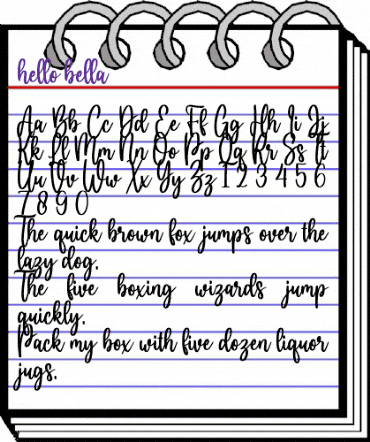 hello bella
Aa Bb Cc Dd Ee Ff Gg Hh Ii Jj
Kk Ll Mm Nn Oo Pp Qq Rr Ss Tt
Uu Vv Ww Xx Yy Zz 1 2 3 4 5 6
7 8 9 0
The quick brown fox jumps over the
lazy dog.
The five boxing wizards jump
quickly.
Pack my box with five dozen liquor
jugs.